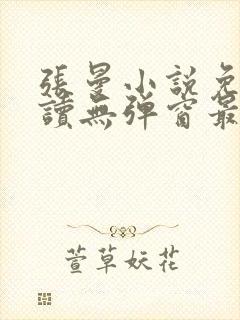 張曼小說免
讀無彈窗最
萱草妖花